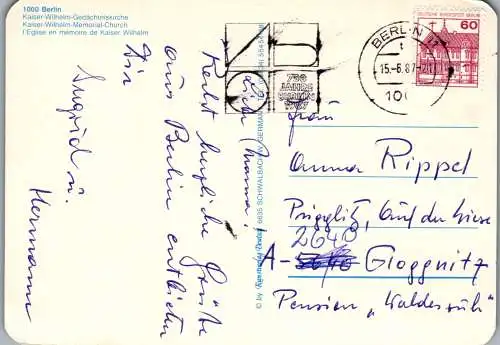 1000 Berlin
Kaiser-Wilhelm-Gedächtniskirche
Kaiser-Wilhelm-Memorial-Church
l'Eglise en mémoire de Kaiser Wilhelm
Liebe Mama!
Recht herzliche Grüße
aus Berlin entbieten
Dir
Ingrid u.
Hermann
© by
6635 SCHWALBACH
GERMANY
750
JAHRE
BERLIN
1987
BERLIN 12
15.-6.87-
100
DEUTSCHE BUNDESPOST BERLIN
60
Frau
Anna Rippel
Prigglitz, Auf der Wiese
2640
A- Gloggnitz
Pension „Waldesruh"